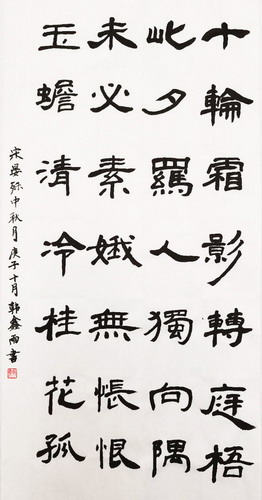 十輪霜影轉庭梧
此夕羈人獨向隅
未必素娥無悵恨
玉蟾清冷桂花孤
宋晏殊中秋月庚子十月韩鑫雨書